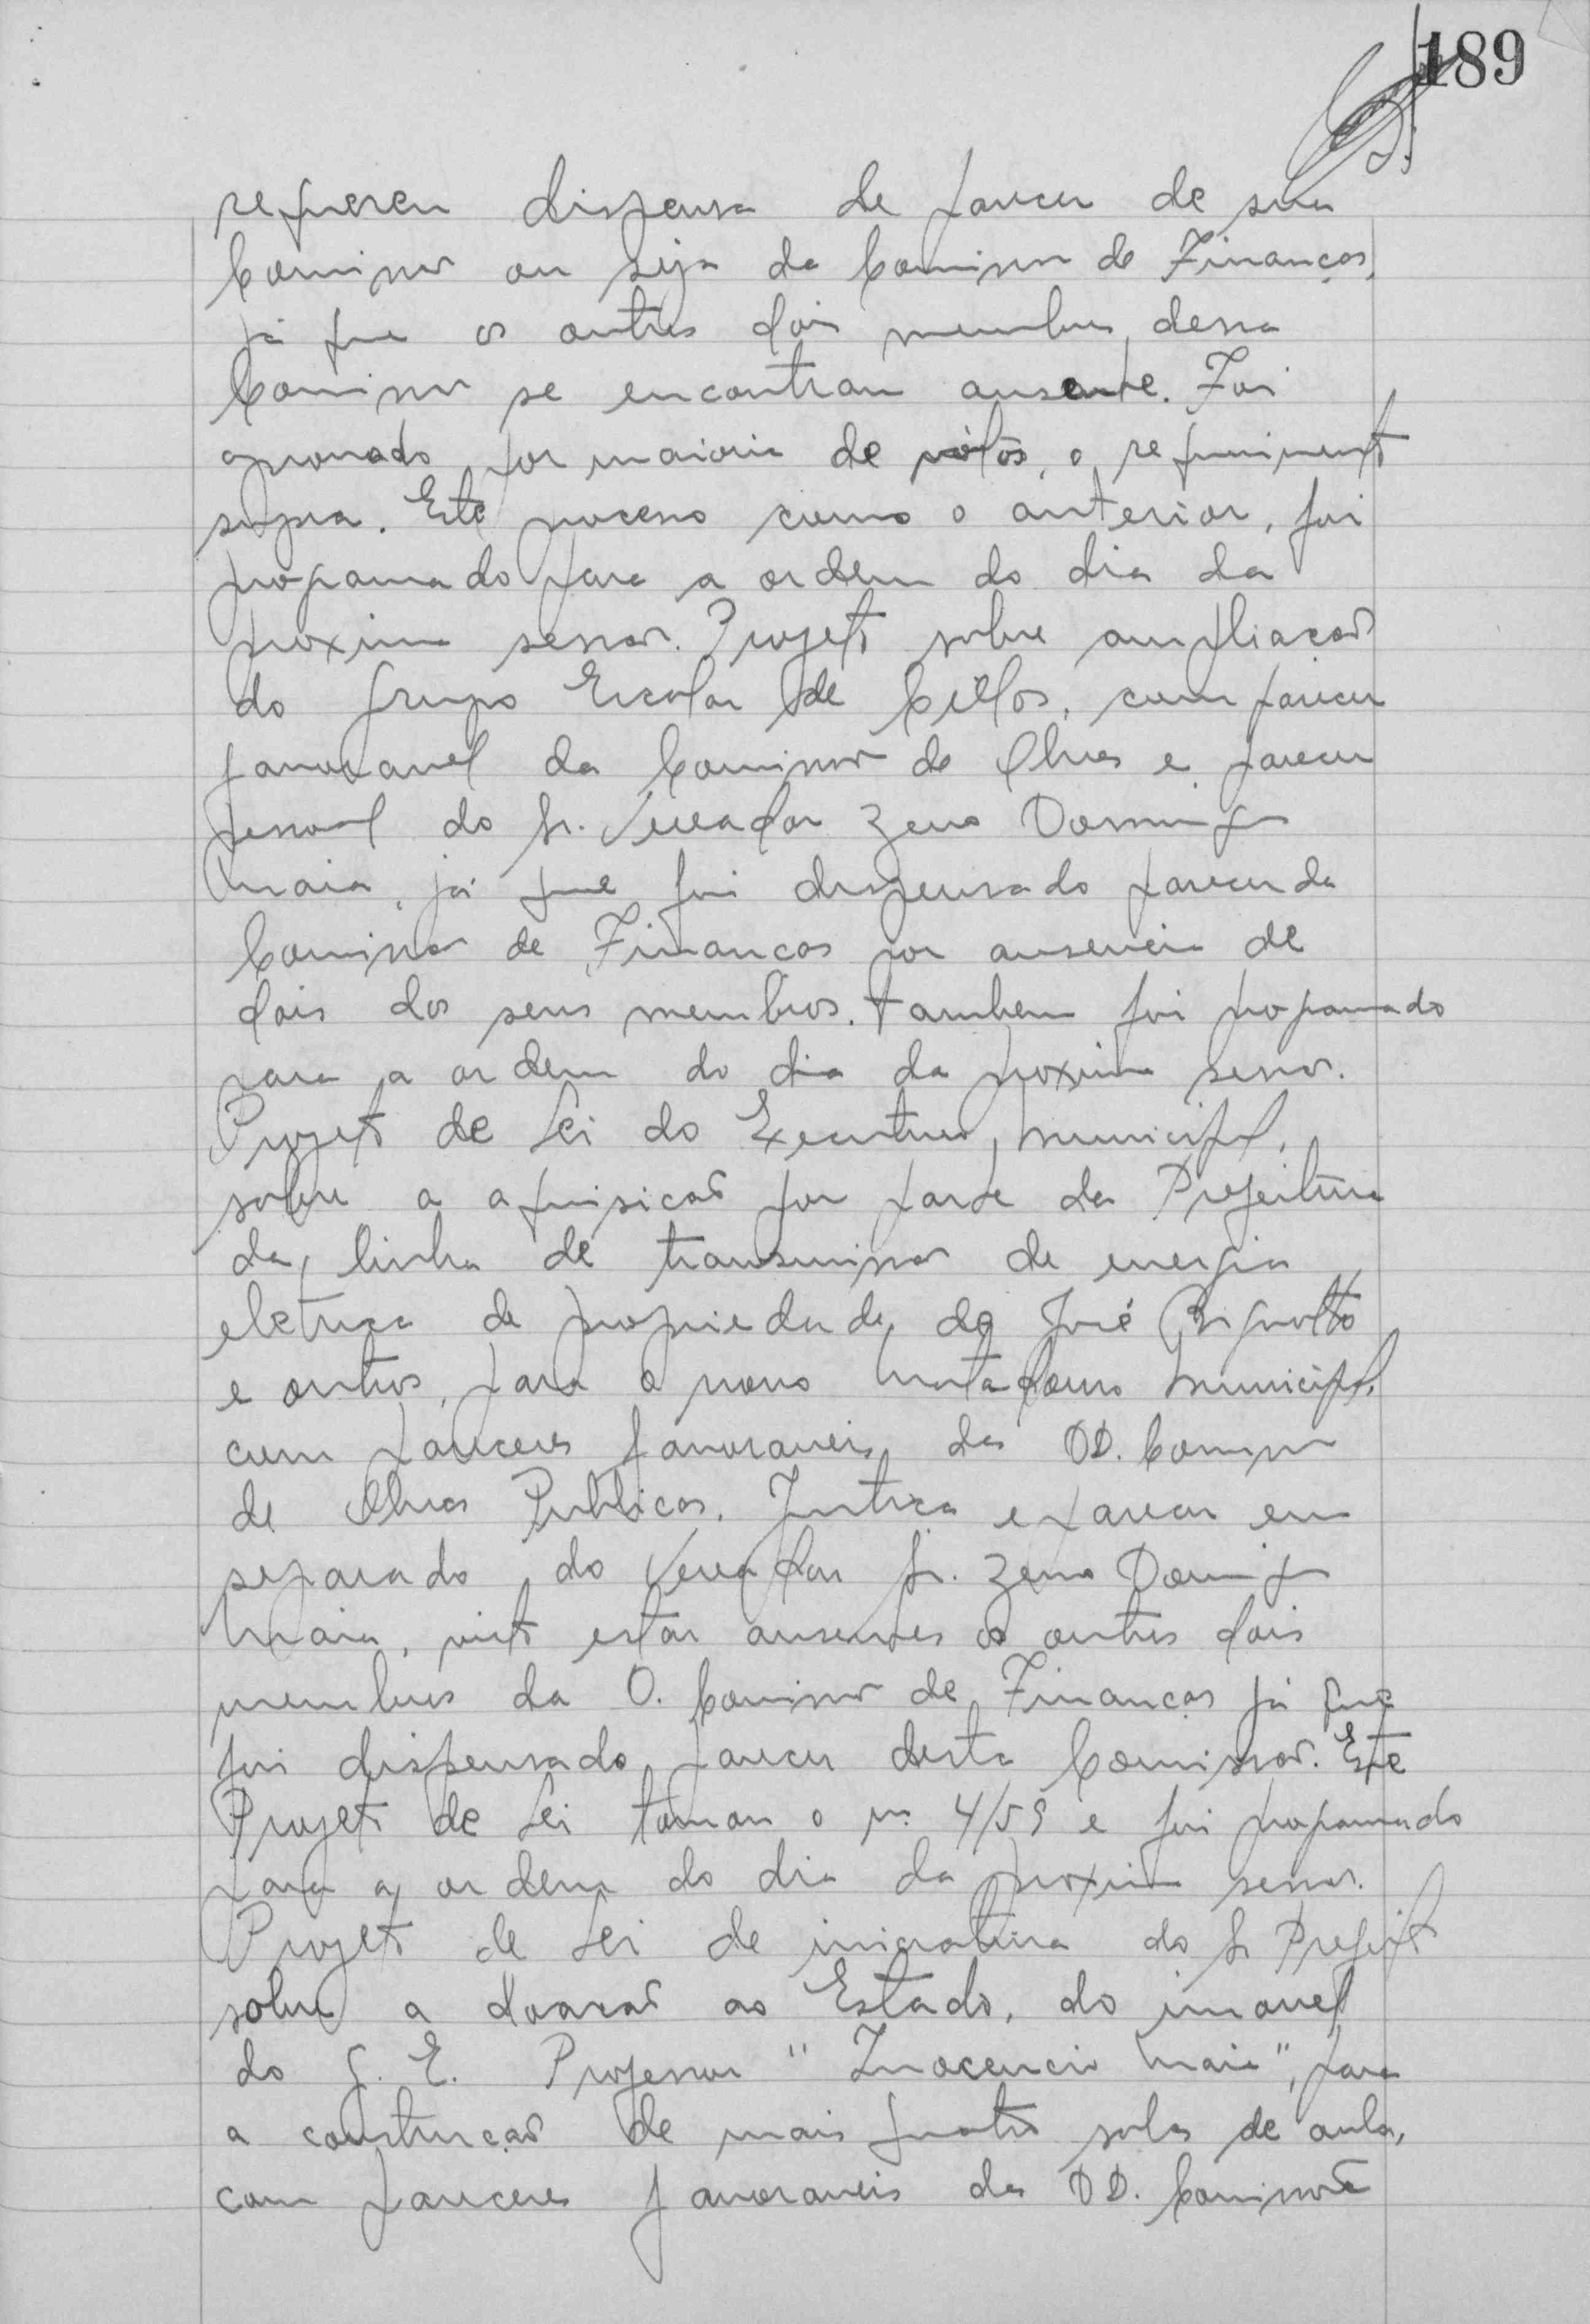 189
requereu dispensa de parecer de sua
Comissão ou seja da Comissão de Finanças,
já que os outros dois membros dessa
Comissão se encontram ausente. Foi
aprovado por maioria de vótos, o requeriment
supra. Este processo como o anterior, foi
programado para a ordem do dia da
proxima sessão. Projeto sobre ampliação
do Grupo Escolar de Cillos, com parecer
favoravel da Comissão de Obras e parecer
pessoal do Sr. Vereador Zeno Domingos
Maia, já que foi dispensado parecer da
Comissão de Finanças por ausencia de
dois dos seus membros. tambem foi programado
para a ordem do dia da proxima sessão.
Projeto de Lei do Executivo Municipal,
sobre a aquisição por parte da Prefeitura
da linha de transmissão de energia
eletrica de propriedade de José
e outros, para o novo Matadouro Municipal,
com pareceres favoraveis das DD. Comissões
de Obras Publicas, Justiça e parecer em
separado do Vereador Sr. Zeno Domingos
Maia, visto estar ausentes os outros dois
membros da D. Comissão de Finanças já que
foi dispensado parecer desta Comissão. Este
Projeto de Lei tomou o nº 4/59 e foi programado
para a ordem do dia da proxima sessão.
Projeto de Lei de iniciativa do Sr Prefeito
sobre a doação ao Estado, do imovel
do G. E. Professor "Inocencio Maia", para
a construção de mais quatro salas de aula,
com pareceres favoraveis das DD. Comissões